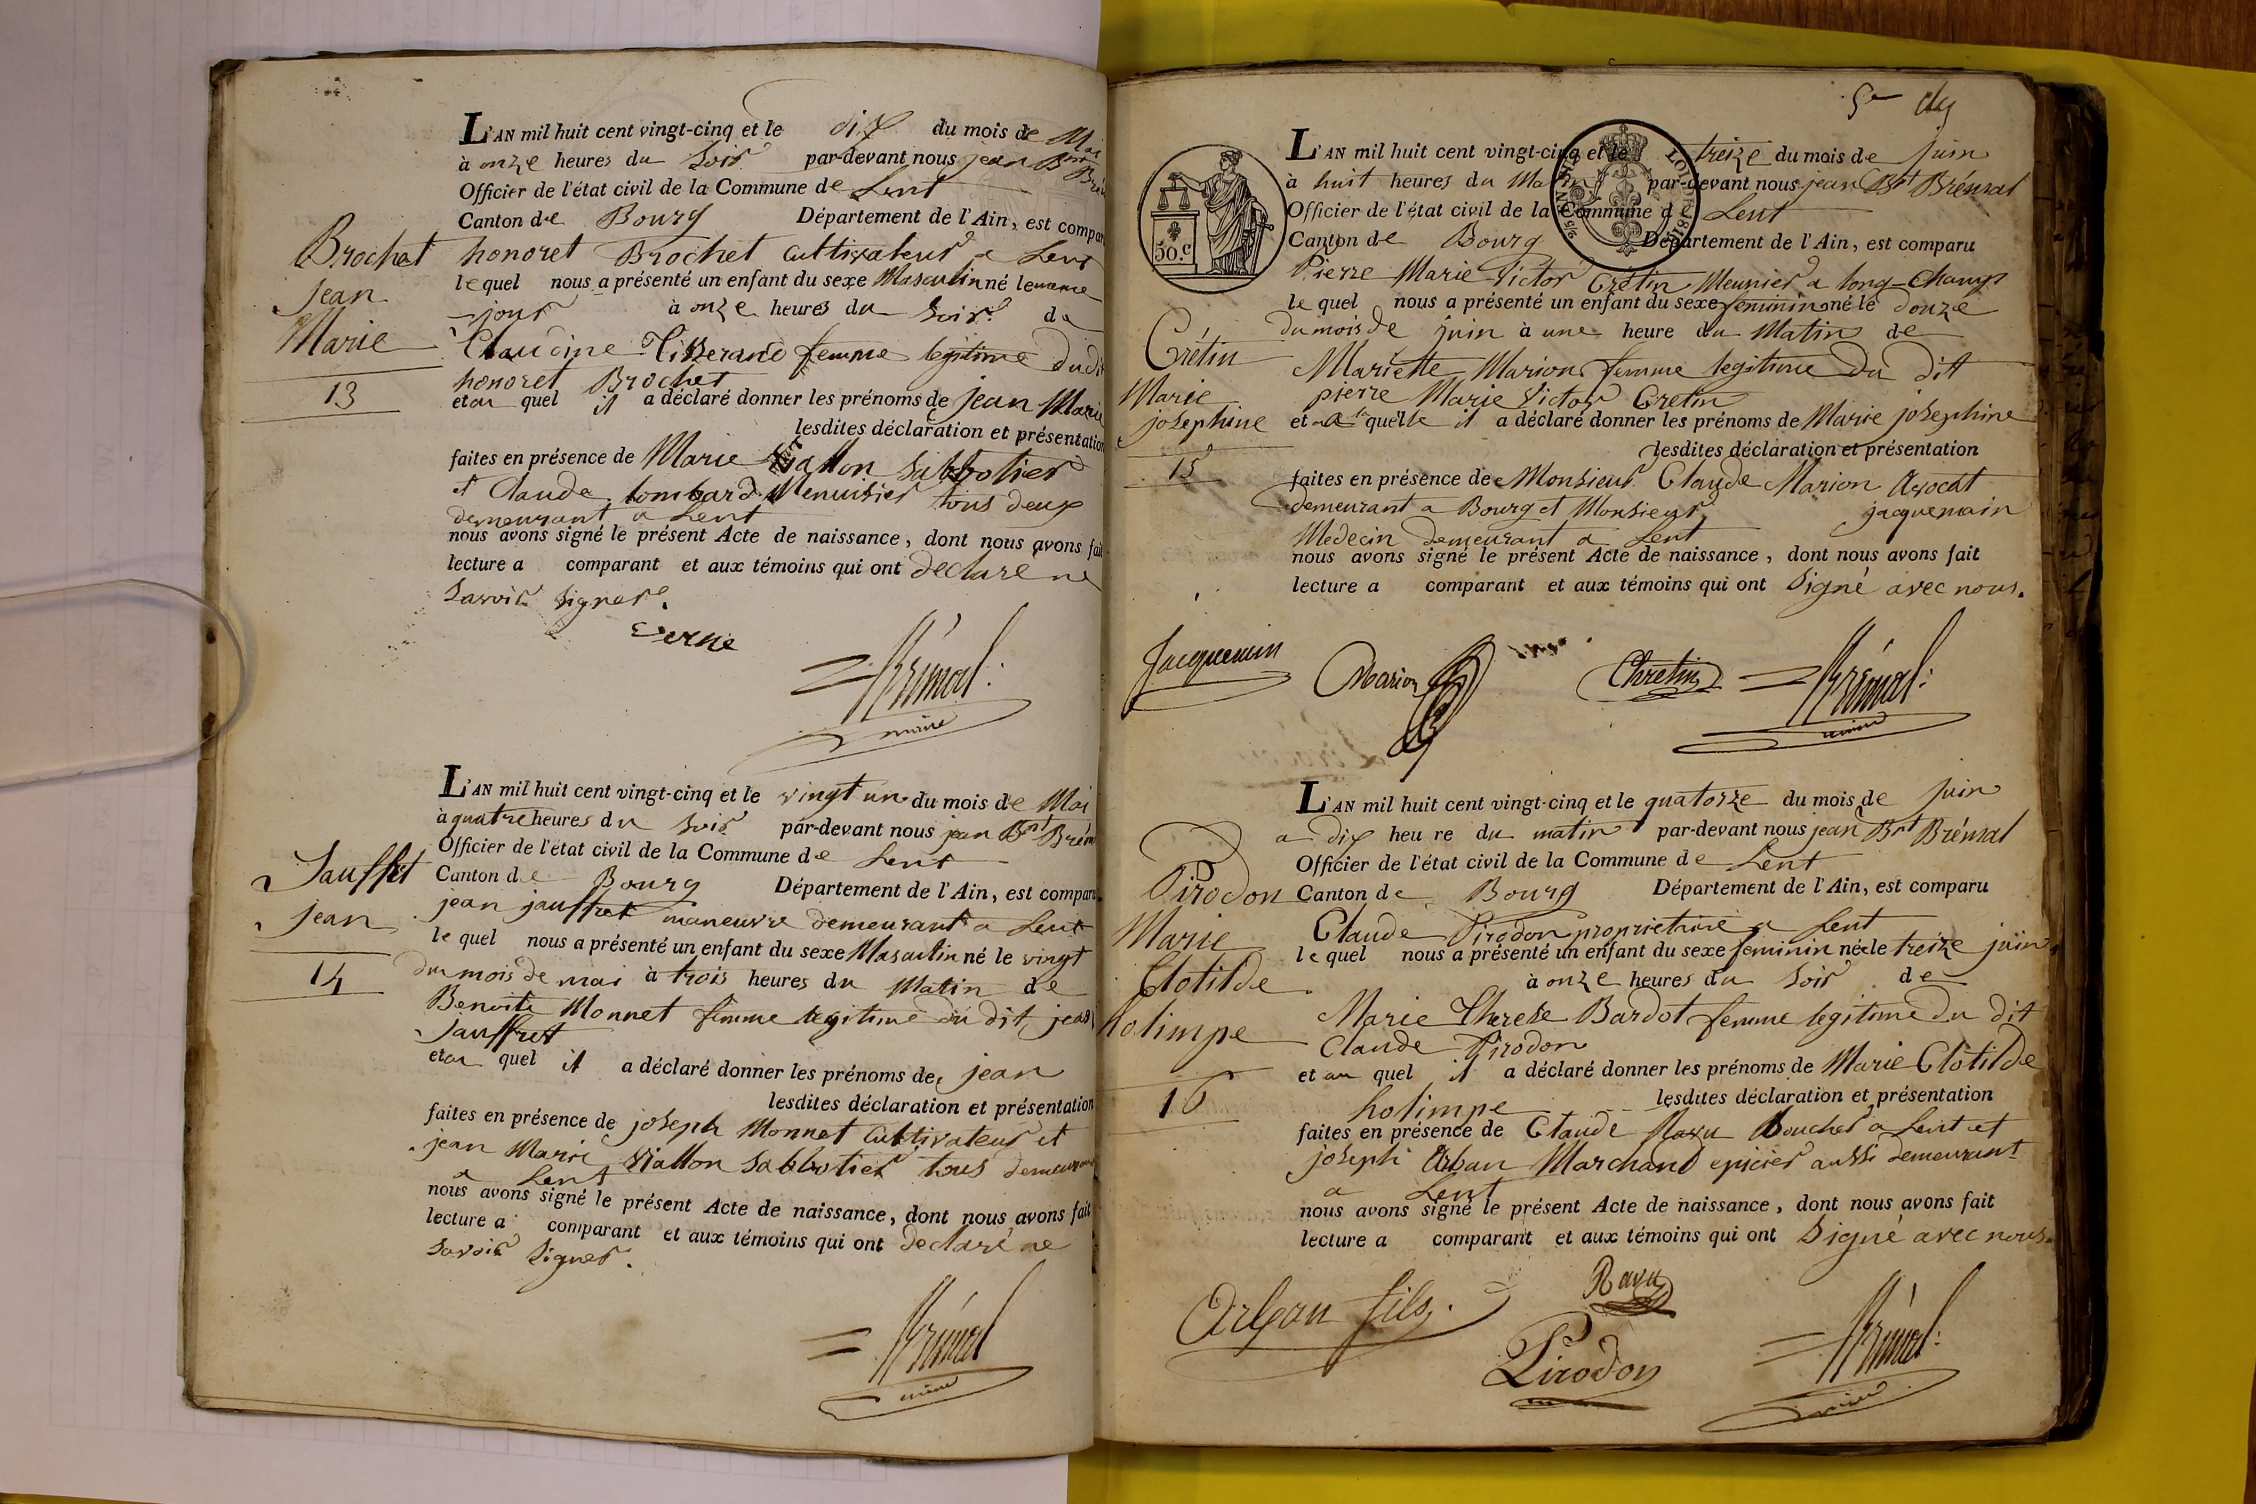 L'AN mil huit cent vingt-cinq et le dix du mois de Mai
à onze heures du Soir par-devant nous jean Bt Bré
Officier de l'état civil de la Commune de Lent
Canton de Bourg Département de l'Ain, est compar
honoret Brochet cultivateur a Lent
Brochet
jean
Marie
13
lequel nous a présenté un enfant du sexe Masculin né le meme
jour à onze heures du Soir de
Claudine Tisserand femme legitime dudit
honoret Brochet
et au quel il a déclaré donner les prénoms de jean Marie
lesdites déclaration et présentation
faites en présence de Marie Viallon Sabbotier
et Claude Lombard Menuisier tous deux
demeurant a Lent
nous avons signé le présent Acte de naissance, dont nous avons fait
lecture a comparant et aux témoins qui ont declaré ne
Savoir Signer.
Verne
Brémal
maire
L'AN mil huit cent vingt-cinq et le vingt un du mois de Mai
à quatre heures du Soir par-devant nous jean Bt Brém
Officier de l'état civil de la Commune de Lent
Canton de Bourg Département de l'Ain, est comparu
Jauffret
jean
14
jean jauffret maneuvre demeurant a Lent
le quel nous a présenté un enfant du sexe Masculin né le vingt
du mois de mai à trois heures du Matin de
Benoite Monnet femme legitime du dit jean
Jauffret
et au quel il a déclaré donner les prénoms de jean
lesdites déclaration et présentation
faites en présence de joseph Monnet Cultivateur et
jean Marie Viallon Sabbotier tous demeurant
a Lent
nous avons signé le présent Acte de naissance, dont nous avons fait
lecture a comparant et aux témoins qui ont declaré ne
Savoir Signer.
Brémal
maire
5e
50.c
L'AN mil huit cent vingt-cinq et le treize du mois de juin
à huit heures du Matin par-devant nous jean Bt Brémal
Officier de l'état civil de la Commune de Lent
Canton de Bourg Département de l'Ain, est comparu
Pierre Marie Victor Crétin Meunier a long-Champ
le quel nous a présenté un enfant du sexe feminin né le douze
du mois de juin à une heure du Matin de
Crétin
Marie
josephine
15
Mariette Marion femme legitime du dit
pierre Marie Victor Cretin
et a la quelle il a déclaré donner les prénoms de Marie josephine
lesdites déclaration et présentation
faites en présence de Monsieur Claude Marion Avocat
demeurant a Bourg et Monsieur jacquemain
Medecin demeurant a Lent
nous avons signé le présent Acte de naissance, dont nous avons fait
lecture a comparant et aux témoins qui ont Signé avec nous.
Jacquemin
Marion
Chretin
Brémal
maire
L'AN mil huit cent vingt-cinq et le quatorze du mois de juin
a dix heure du matin par-devant nous jean Bt Brémal
Officier de l'état civil de la Commune de Lent
Canton de Bourg Département de l'Ain, est comparu
Pirodon
Marie
Clotilde
holimpe
16
Claude Pirodon proprietaire a Lent
le quel nous a présenté un enfant du sexe feminin née le treize juin
à onze heures du Soir de
Marie Therese Bardot femme legitime du dit
Claude Pirodon
et au quel il a déclaré donner les prénoms de Marie Clotilde
holimpe lesdites déclaration et présentation
faites en présence de Claude Ravu Boucher a Lent et
joseph Arban Marchand epicier aussi demeurant
a Lent
nous avons signé le présent Acte de naissance, dont nous avons fait
lecture a comparant et aux témoins qui ont Signé avec nous.
Arban fils.
Ravu
Pirodon
Brémal
maire